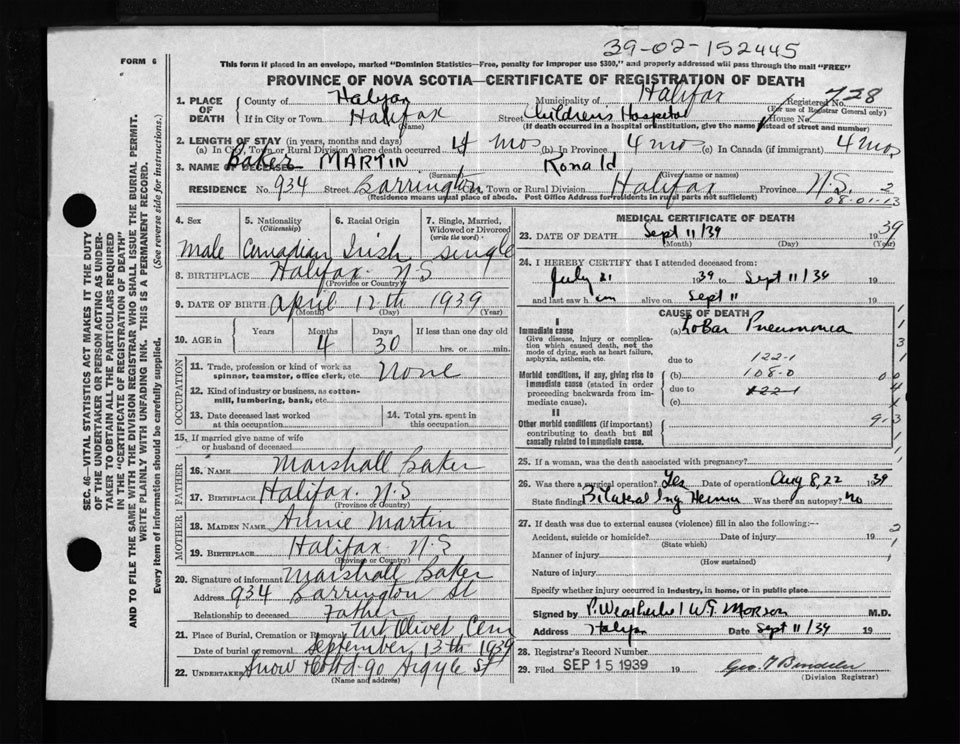 39-02-152445
FORM 6
This form if placed in an envelope, marked "Dominion Statistics—Free, penalty for improper use $300," and properly addressed will pass through the mail "FREE"
PROVINCE OF NOVA SCOTIA—CERTIFICATE OF REGISTRATION OF DEATH
1. PLACE OF DEATH { County of Halifax Municipality of Halifax Registered No. 728
(For use of Registrar General only)
If in City or Town Halifax Street Children's Hospital House No.
(Name) (If death occurred in a hospital or institution, give the name instead of street and number)
2. LENGTH OF STAY (in years, months and days)
(a) In City, Town or Rural Division where death occurred 4 mos (b) In Province 4 mos (c) In Canada (if immigrant) 4 mos
3. NAME OF DECEASED Baker MARTIN Ronald
(Surname) (Given name or names)
RESIDENCE No. 934 Street Barrington City, Town or Rural Division Halifax Province N.S. 2
(Residence means usual place of abode. Post Office Address for residents in rural parts not sufficient) 08-01-13
4. Sex
Male
5. Nationality
(Citizenship)
Canadian
6. Racial Origin
Irish
7. Single, Married, Widowed or Divorced
(write the word)
Single
8. BIRTHPLACE Halifax N.S
(Province or Country)
9. DATE OF BIRTH April 12th 1939
(Month) (Day) (Year)
10. AGE in { Years Months Days If less than one day old
4 30 hrs. or min.
OCCUPATION
11. Trade, profession or kind of work as spinner, teamster, office clerk, etc. None
12. Kind of industry or business, as cotton-mill, lumbering, bank, etc.
13. Date deceased last worked at this occupation
14. Total yrs. spent in this occupation
15. If married give name of wife or husband of deceased
FATHER
16. NAME Marshall Baker
17. BIRTHPLACE Halifax N.S
(Province or Country)
MOTHER
18. MAIDEN NAME Annie Martin
19. BIRTHPLACE Halifax N.S
(Province or Country)
20. Signature of informant Marshall Baker
Address 934 Barrington St
Relationship to deceased Father
21. Place of Burial, Cremation or Removal Mt Olivet Cem
Date of burial or removal September 13th 1939
22. UNDERTAKER Snow & Co Ltd 90 Argyle St
(Name and address)
MEDICAL CERTIFICATE OF DEATH
23. DATE OF DEATH Sept 11/39 1939
(Month) (Day) (Year)
24. I HEREBY CERTIFY that I attended deceased from:
July 21 1939 to Sept 11/39 19
and last saw him alive on Sept 11 19
CAUSE OF DEATH
I
Immediate cause
Give disease, injury or complication which caused death, not the mode of dying, such as heart failure, asphyxia, asthenia, etc.
(a) Lobar Pneumonia
due to 122-1
Morbid conditions, if any, giving rise to immediate cause (stated in order proceeding backwards from immediate cause).
(b) 108-0
due to 122-1
(c)
II
Other morbid conditions (if important) contributing to death but not causally related to immediate cause.
25. If a woman, was the death associated with pregnancy?
26. Was there a surgical operation? Yes Date of operation Aug 8, 22 1939
State finding Bilateral Ing Hernia Was there an autopsy? No
27. If death was due to external causes (violence) fill in also the following:—
Accident, suicide or homicide? Date of injury 19
(State which)
Manner of injury
(How sustained)
Nature of injury
Specify whether injury occurred in industry, in home, or in public place
Signed by P. Weatherbe / W.G. Morson M.D.
Address Halifax Date Sept 11/39 19
28. Registrar's Record Number
29. Filed SEP 15 1939 19
(Division Registrar)
SEC. 46—VITAL STATISTICS ACT MAKES IT THE DUTY OF THE UNDERTAKER OR PERSON ACTING AS UNDERTAKER TO OBTAIN ALL THE PARTICULARS REQUIRED IN THE "CERTIFICATE OF REGISTRATION OF DEATH"
AND TO FILE THE SAME WITH THE DIVISION REGISTRAR WHO SHALL ISSUE THE BURIAL PERMIT.
WRITE PLAINLY WITH UNFADING INK. THIS IS A PERMANENT RECORD.
Every item of information should be carefully supplied. (See reverse side for instructions.)